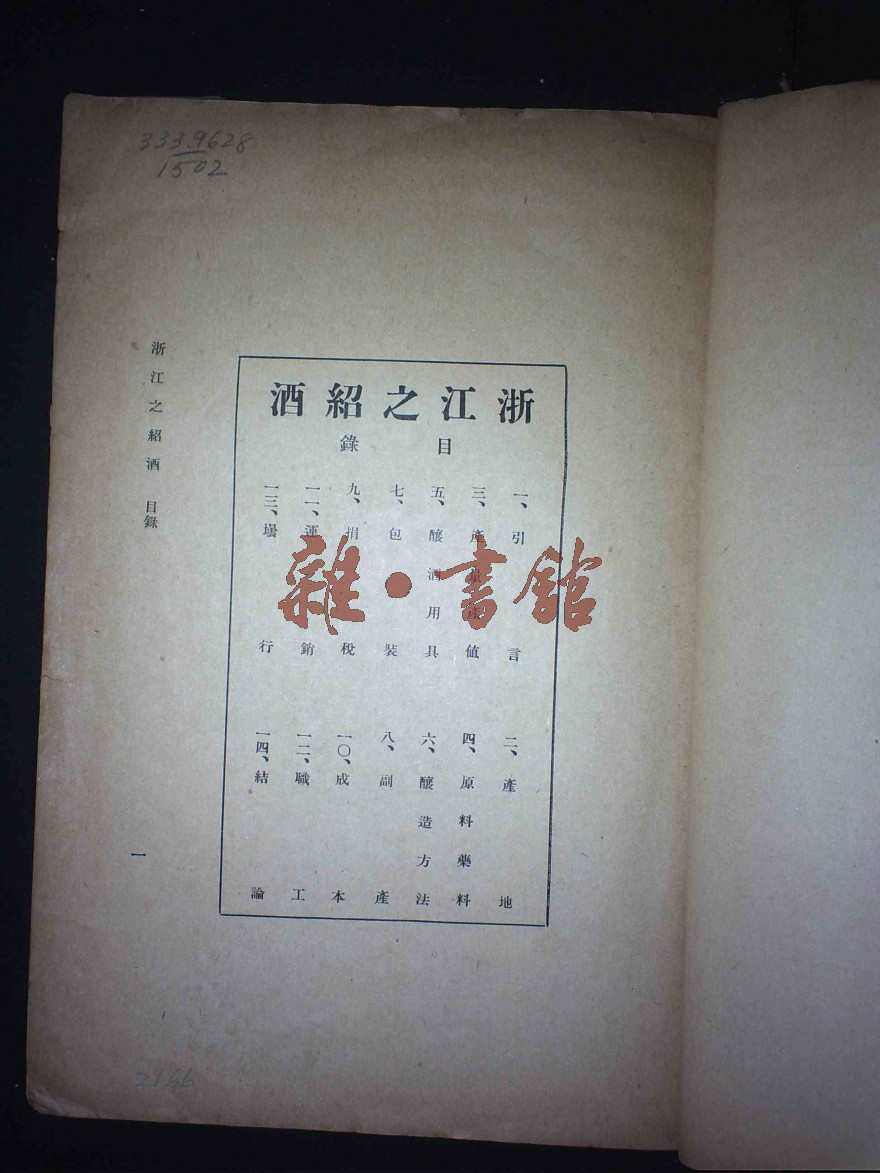 333.9628
1502
浙江之紹酒
目錄
一、引言
二、產地
三、產量產值
四、原料藥料
五、釀酒用具
六、釀造方法
七、包裝
八、副產
九、捐稅
一〇、成本
一一、運銷
一二、職工
一三、壜行
一四、結論
浙江之紹酒 目錄
一
雜·書館
2166